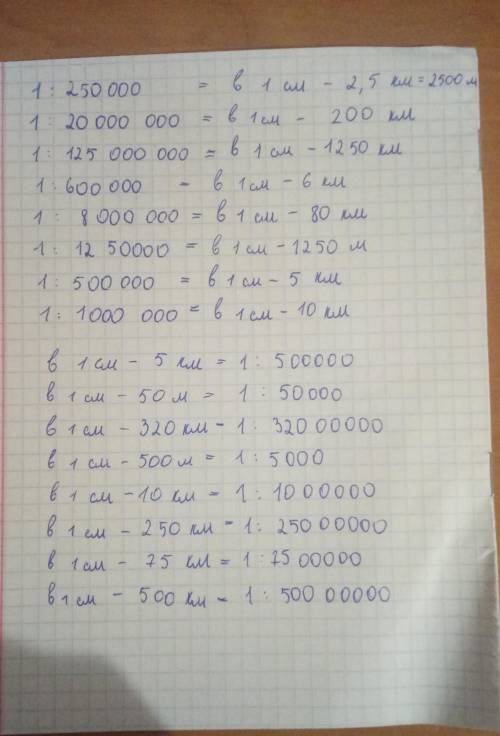 1 : 250 000 = в 1 см - 2,5 км = 2500 м
1 : 20 000 000 = в 1 см - 200 км
1 : 125 000 000 = в 1 см - 1250 км
1 : 600 000 = в 1 см - 6 км
1 : 8 000 000 = в 1 см - 80 км
1 : 12 50000 = в 1 см - 1250 м
1 : 500 000 = в 1 см - 5 км
1 : 1000 000 = в 1 см - 10 км
в 1 см - 5 км = 1 : 500000
в 1 см - 50 м = 1 : 50000
в 1 см - 320 км - 1 : 320 00000
в 1 см - 500 м = 1 : 5000
в 1 см - 10 км = 1 : 1000000
в 1 см - 250 км - 1 : 250 00000
в 1 см - 75 км = 1 : 75 00000
в 1 см - 500 км - 1 : 500 00000